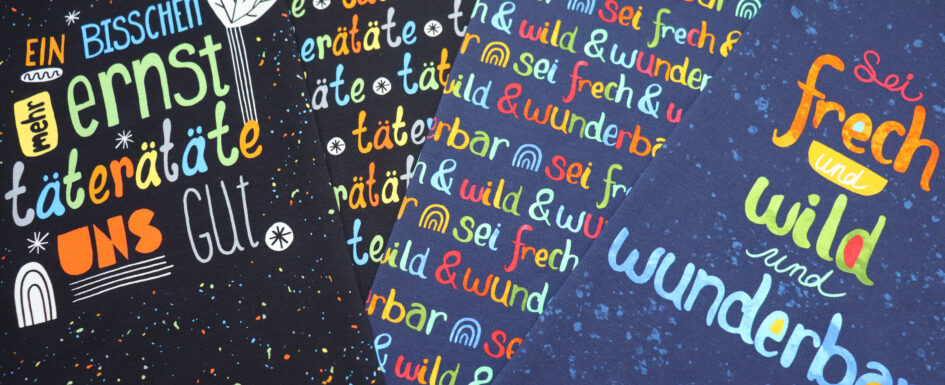 EIN BISSCHEN
mehr ernst
täterätäte
UNS GUT
erätäte
täte täte
täte
rätät
te
sei frech
wild & wunderbar
sei frech &
wild & wunderbar
erbar sei frech
& wild & wunder
sei frech
eild & wund
erbar sei
Sei
frech
und
wild
und
wunderbar